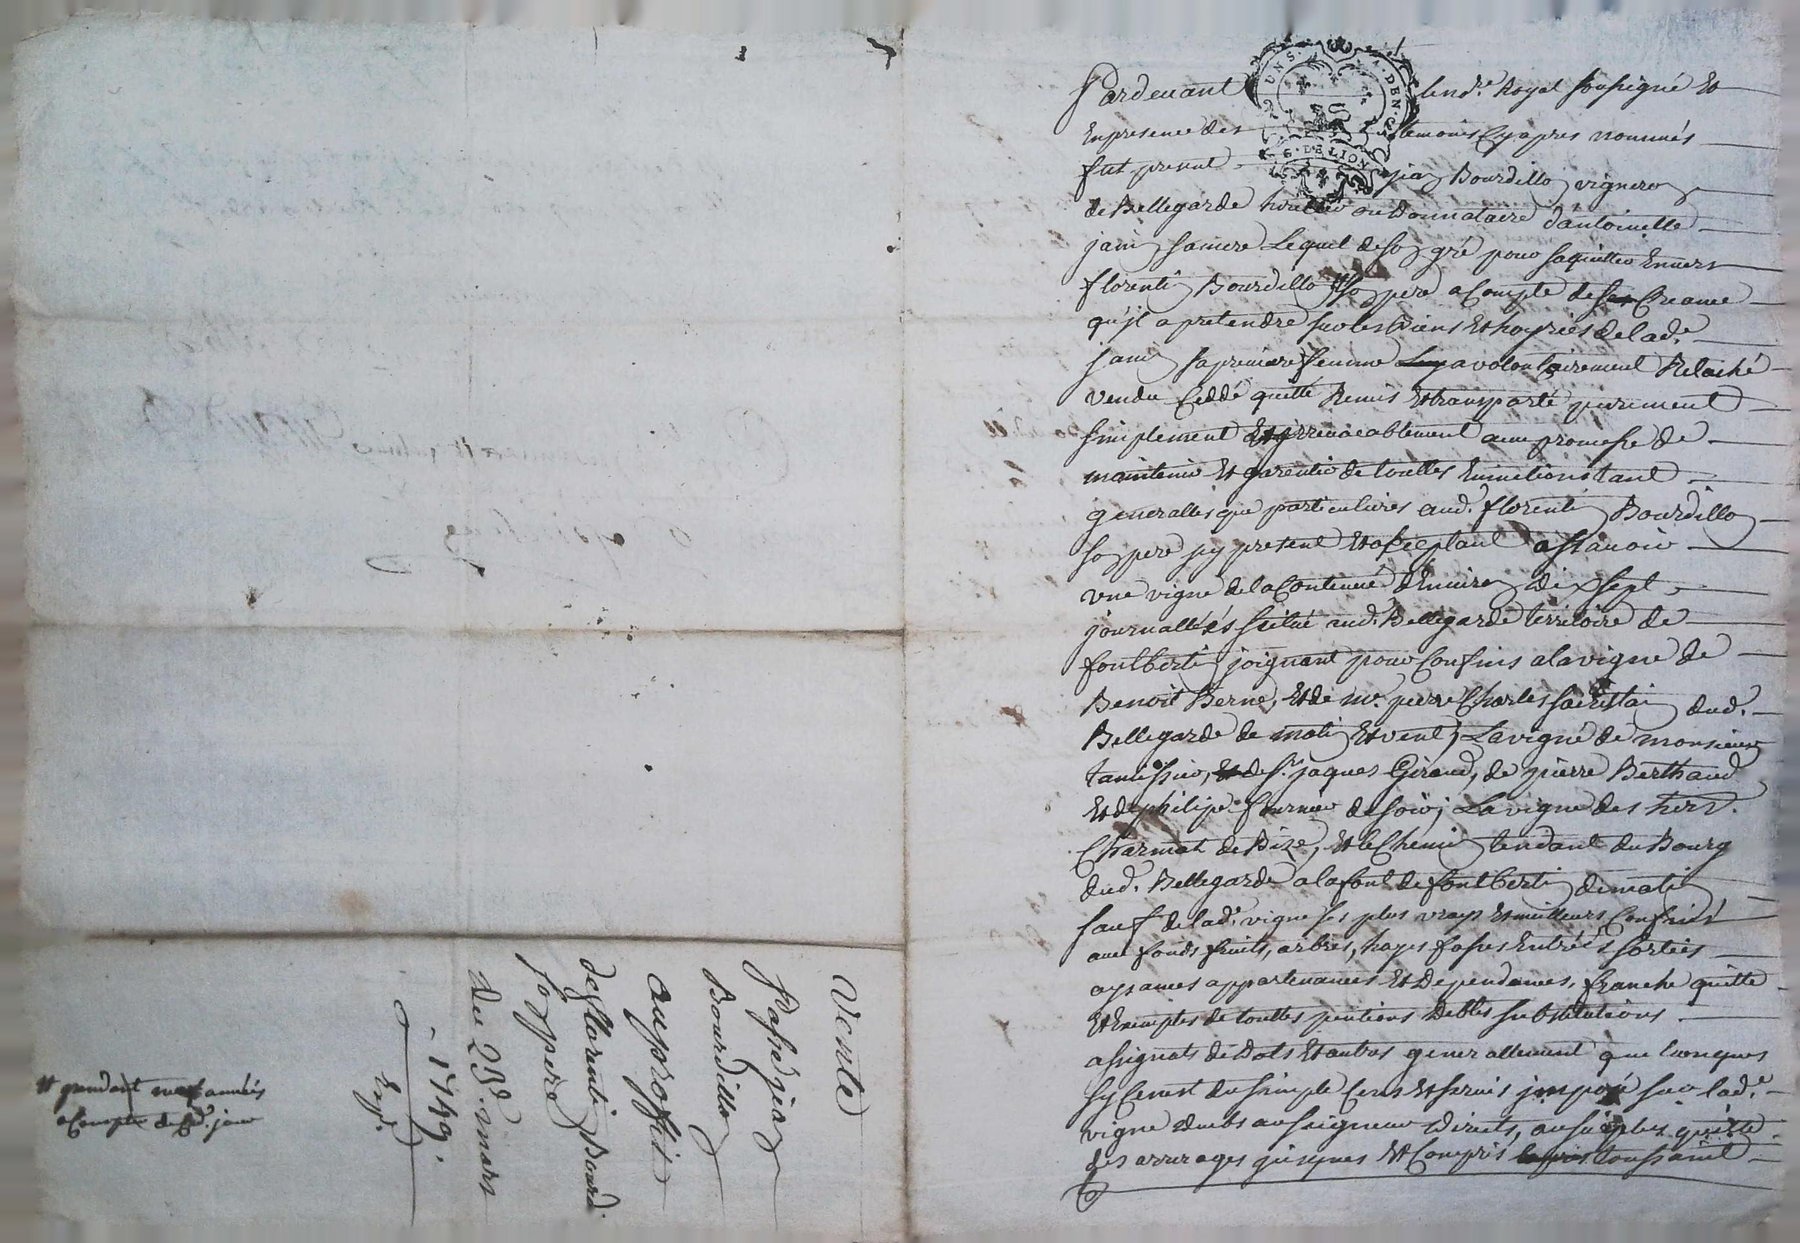 Pardevant le nore. Royal soussigné Et
En presence des temoins Cy apres nommés
fut present jean Bourdillon vigneron
de Bellegarde heritier ou Donnataire d'antoinette
janin sa mere Lequel de son gré pour saquitter Envers
florentin Bourdillon son pere a Compte de Creance
qu'jl a pretendre sur les Biens Et hoyries de lade.
janin sa premiere femme a volontairement Relaché
vendu Ceddé quitté Remis Et transporté purement
simplement Et jrrevocablement avec promesse de
maintenir Et garentir de touttes Evinctions tant
generalles que particulieres aud. florentin Bourdillon
son pere jcy present Et acceptant assavoir
une vigne de la Contenue d'Environ dix sept
journallées scitué aud. Bellegarde territoire de
fontbertin joignant pour Confins a la vigne de
Benoit Berne, Et de me. pierre Charles sacristain dud.
Bellegarde de matin Et vent, La vigne de monsieur
de sr. jaques Giraud, de pierre Berthaud
Et de philipe fournier de soir, La vigne des hers.
Charmat de Bize, Et le Chemin tendant du Bourg
dud. Bellegarde a la font de fontbertin de matin
sauf de lade. vigne ses plus vrays Et meilleurs Confins
avec fonds fruits, arbres, hayes fosses Entrées sorties
aysances appartenances Et Dependances, franche quitte
Et Exemptes de touttes pentions Debtes substitutions
assignats de Dots Et autres generallement quelconques
sy Ce n'est du simple Cens Et servis jmposé sur lade.
vigne deubs au seigneur Direct, aussy quitte
des arrerages jusques Et Compris toussaint
Et pendant neuf années
a Compter de Ce jour
Vente
Passé jean
Bourdillon
au proffit
de florentin Bourd.
son pere
du 23e. mars
1749.
Expd.
G. DE LION